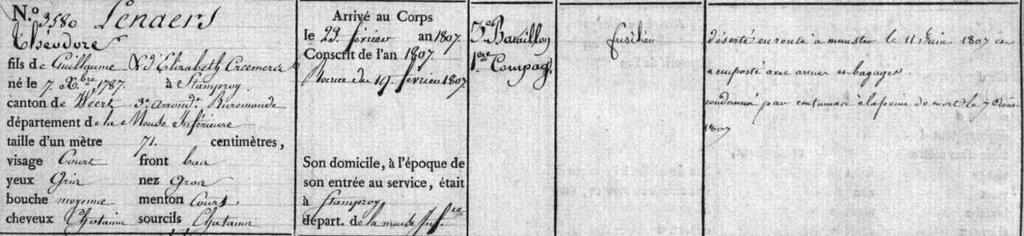 N.º 3580 Lenaers
Théodore
fils de Guillaume & d'Elizabeth Creemers
né le 7. Xbre 1787. à Stamproy
canton de Weert 3e arrondt. Ruremonde
département de la Meuse Inférieure
taille d'un mètre 71. centimètres,
visage Court front bas
yeux Gris nez Gros
bouche moyenne menton Court
cheveux Chatains sourcils Chatains
Arrivé au Corps
le 23 février an 1807.
Conscrit de l'an 1807.
du 19 février 1807
Son domicile, à l'époque de
son entrée au service, était
à Stamproy
départ. de la meuse Infre
3e Bataillon
1ere Compag.
fusilier
déserté en route à munster le 11 Juin 1807 en
emporté avec armes et bagages.
condamné par contumace à la peine de mort le 7
1807